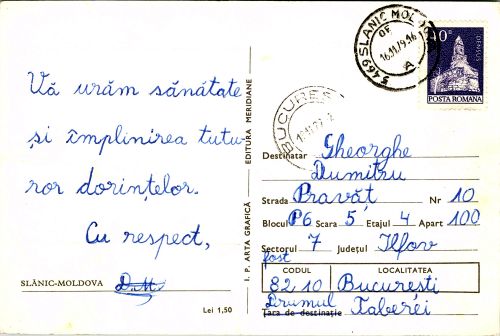 Vă urăm sănătate
și împlinirea tutu-
ror dorințelor.
Cu respect,
D.M.
SLĂNIC-MOLDOVA
Lei 1,50
I. P. ARTA GRAFICĂ
EDITURA MERIDIANE
5469 SLANIC MOLDOVA
OF
A
BUCUREȘTI
40B
DENSUS
POSTA ROMANA
Destinatar Gheorghe
Dumitru
Strada Pravăț Nr 10
Blocul P6 Scara 5 Etajul 4 Apart 100
Sectorul 7 Județul Ilfov
fost
CODUL LOCALITATEA
8210 București
Drumul Taberei
Țara de destinație